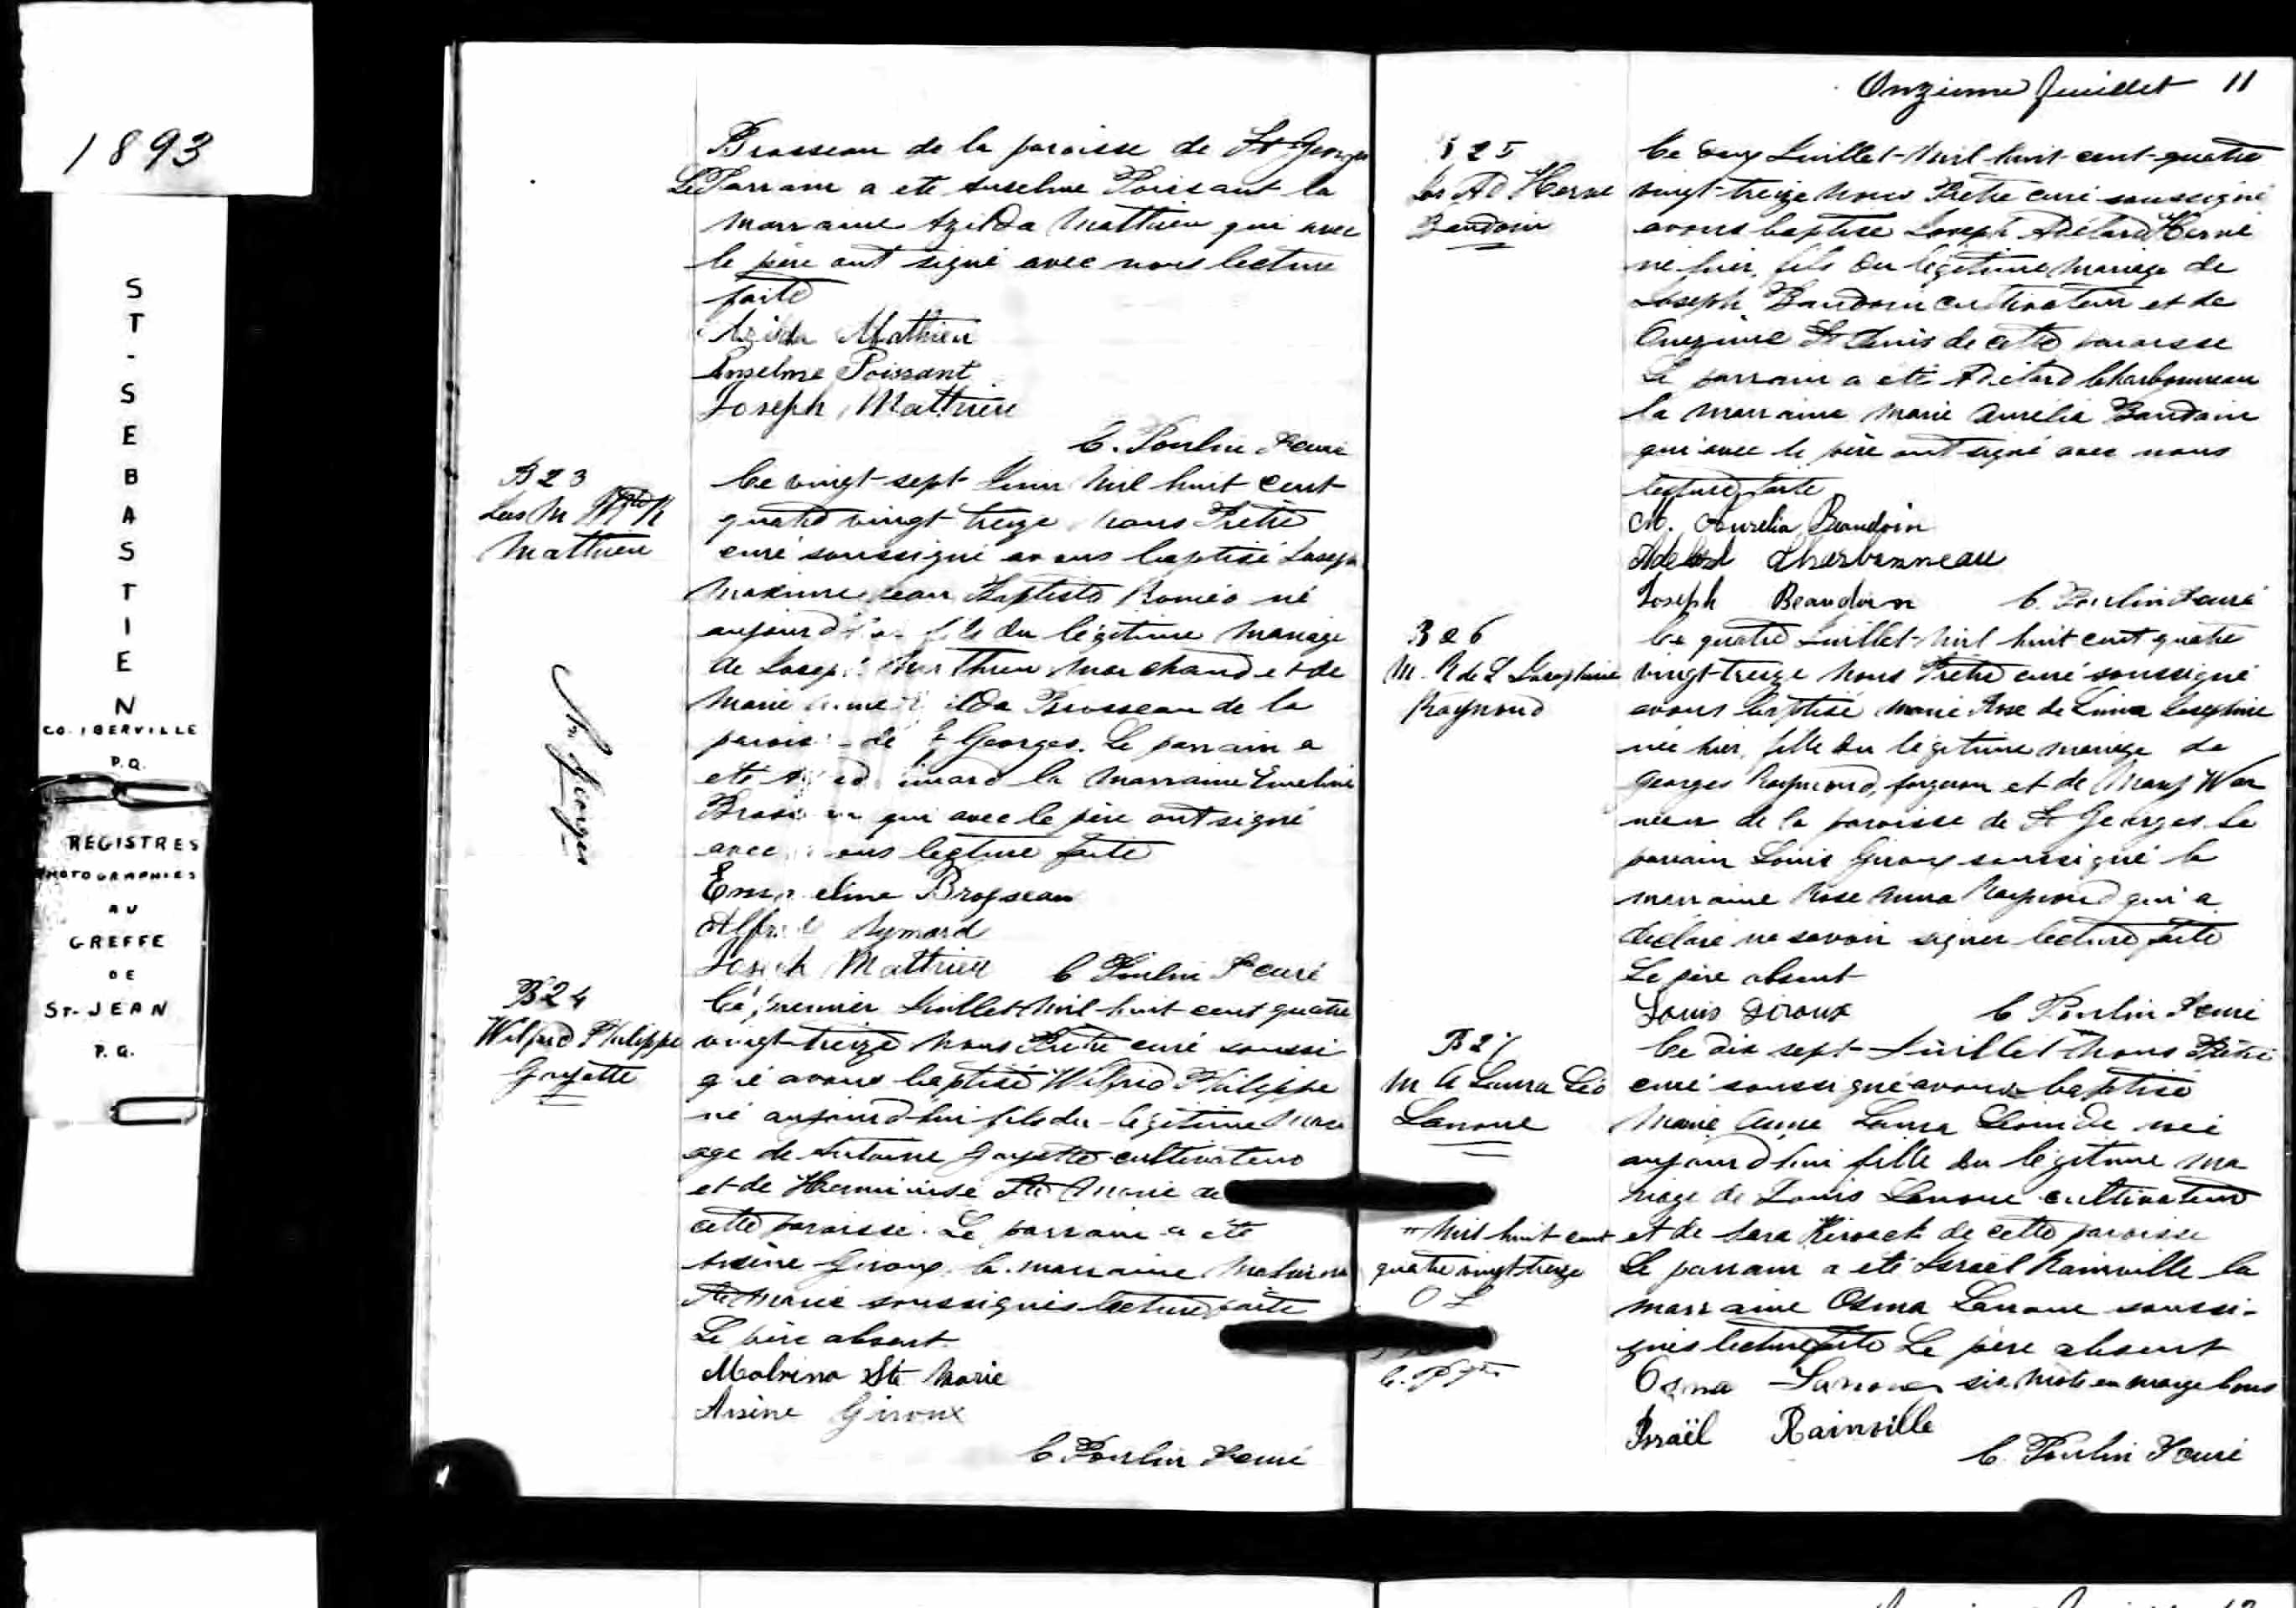 1893
ST-SEBASTIEN
CO. IBERVILLE
P.Q.
REGISTRES
PHOTOGRAPHIES
AU
GREFFE
DE
ST-JEAN
P.Q.
Brosseau de la paroisse de St Georges
Le Parrain a ete Anselme Poissant la
marraine Azilda Matthieu qui avec
le père ont signé avec nous lecture
faite
Azilda Mathieu
Anselme Poissant
Joseph Matthieu
C. Poulin Ptre curé
B 23
Jos M
Matthieu
St Georges
Ce vingt-sept Juin Mil huit cent
quatre vingt treize Nous Prêtre
curé soussigné avons baptisé Joseph
Maxime Jean Baptiste Roméo né
aujourd'hui fils du légitime mariage
de Joseph Matthieu Marchand et de
Marie ilda Brosseau de la
paroisse de St Georges. Le parrain a
ete la marraine Emeline
Brosseau qui avec le père ont signé
avec nous lecture faite
Emmeline Brosseau
Alfred Aymard
Joseph Matthieu C Poulin Ptre curé
B 24
Wilfrid Philippe
Goyette
Ce premier Juillet Mil-huit-cent quatre
vingt-treize Nous Prêtre curé soussi
gné avons baptisé Wilfrid Philippe
né aujourd'hui fils du légitime mari
age de Antoine Goyette cultivateur
et de Herminise Ste Marie de
cette paroisse. Le parrain a été
Arsène Giroux la marraine Malvina
Ste Marie soussignés lecture faite
Le père absent.
Malvina Ste Marie
Arsène Giroux
C Poulin Ptre curé
Onzième feuillet 11
B 25
Jos Ad Herve
Baudoin
Ce deux Juillet-Mil huit-cent-quatre
vingt-treize Nous Prêtre curé soussigné
avons baptisé Joseph Adélard Hervé
né hier, fils du légitime mariage de
Joseph Baudoin cultivateur et de
St Denis de cette paroisse
Le parrain a été Adélard Charbonneau
la marraine Marie Aurélia Baudoin
qui avec le père ont signé avec nous
lecture faite
M. Aurelia Beaudoin
Adelard Charbonneau
Joseph Beaudoin C. Poulin Ptre curé
B 26
M. R de L Josephine
Raymond
Ce quatre Juillet-Mil huit cent quatre
vingt-treize Nous Prêtre curé soussigné
avons baptisé Marie Rose de Lima Josephine
née hier, fille du légitime mariage de
Georges Raymond, forgeron et de Mary War
neur de la paroisse de St Georges. Le
parrain Louis Giroux soussigné la
marraine Rose Anna Raymond qui a
déclaré ne savoir signer lecture faite
Le père absent
Louis Giroux C Poulin Ptre curé
B 27
M A Laura Léo
Lanoue
Ce dix sept Juillet " Nous Prêtre
curé soussigné avons baptisé
Marie Anne Laura Léonide née
aujourd'hui fille du légitime ma
riage de Louis Lanoue cultivateur
et de Sara Kirouack de cette paroisse
Le parrain a été Israël Rainville la
marraine Osma Lanoue soussi-
gnés lecture faite Le père absent
" Mil huit cent
quatre vingt treize
O L
Osma Lanoue six mots en marge bons
Israël Rainville
C. Poulin Ptre curé